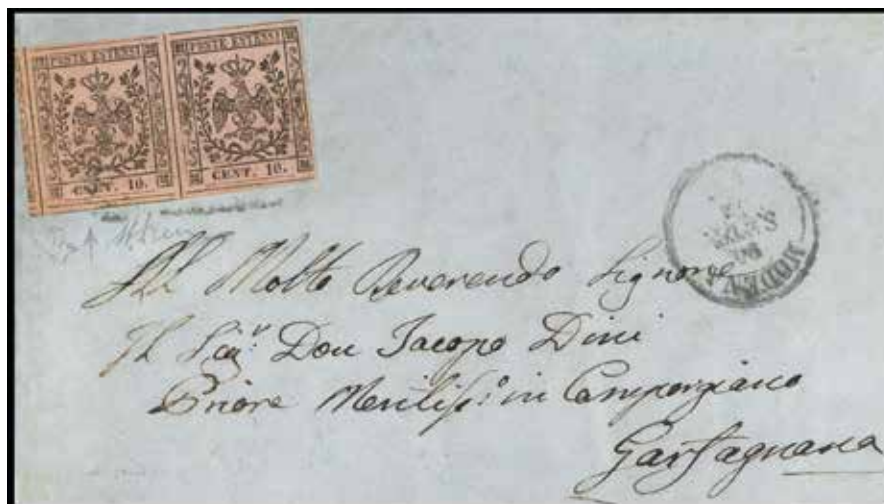 POSTE ESTENSI POSTE ESTENSI
CENT. 10. CENT. 10.
MODENA
All Molto Reverendo Signore
Il Sigr. Don Jacopo Dini
Priore Meritiss:o in Camporgiano
Garfagnana